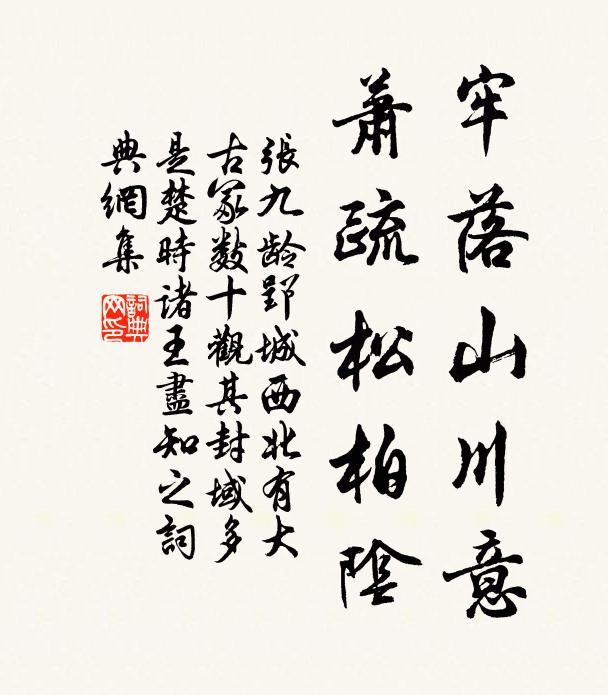 牢落山川意
蕭疏松柏陰
張九龄郢城西北有大
古冢数十觀其封域多
是楚時諸王盡知之詞
典網集
詞典
网印